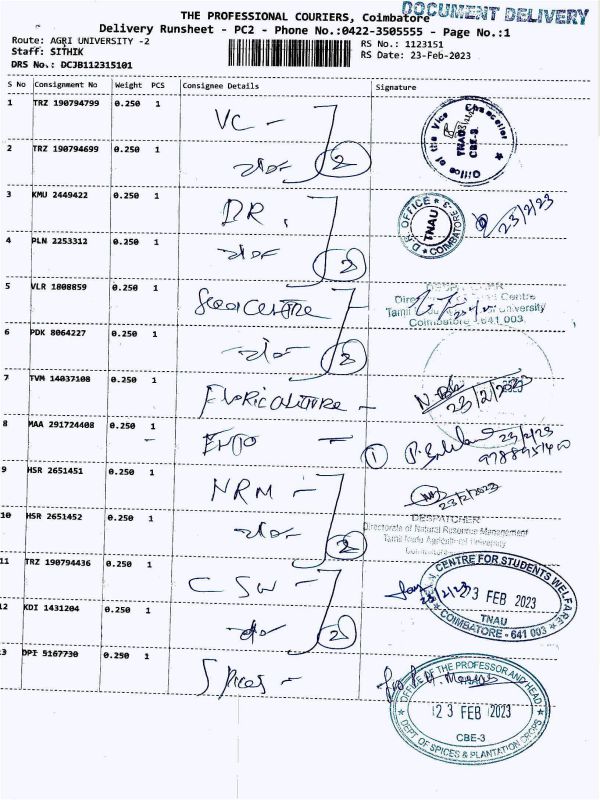 DOCUMENT DELIVERY
THE PROFESSIONAL COURIERS, Coimbatore
Delivery Runsheet - PC2 - Phone No.:0422-3505555 - Page No.:1
Route: AGRI UNIVERSITY -2
RS No.: 1123151
Staff: SITHIK
RS Date: 23-Feb-2023
DRS No.: DCJB112315101
S No Consignment No Weight PCS Consignee Details Signature
1 TRZ 190794799 0.250 1 VC -
Office of the Vice Chancellor
TNAU
CBE-3
2 TRZ 190794699 0.250 1 2
3 KMU 2449422 0.250 1 DR.
D.R. OFFICE
TNAU
COIMBATORE -3
23/2/23
4 PLN 2253312 0.250 1 2
5 VLR 1808859 0.250 1 Seed Centre
DESPATCHER
Centre
Tamil University
Coimbatore - 641 003.
6 PDK 8064227 0.250 1 2
7 TVM 14037108 0.250 1 Floriculture -
23/2/2023
8 MAA 291724408 0.250 1 Ento - 1
23/2/23
9 HSR 2651451 0.250 1 NRM -
23/2/2023
10 HSR 2651452 0.250 1 2
DESPATCHER
Directorate of Natural Resource Management
Tamil Nadu Agricultural University
Coimbatore
11 TRZ 190794436 0.250 1 CSW -
CENTRE FOR STUDENTS WELFARE
23 FEB 2023
TNAU
COIMBATORE - 641 003
12 KDI 1431204 0.250 1 2
13 DPI 5167730 0.250 1 Spices -
OFFICE OF THE PROFESSOR AND HEAD
23 FEB 2023
CBE-3
DEPT. OF SPICES & PLANTATION CROPS